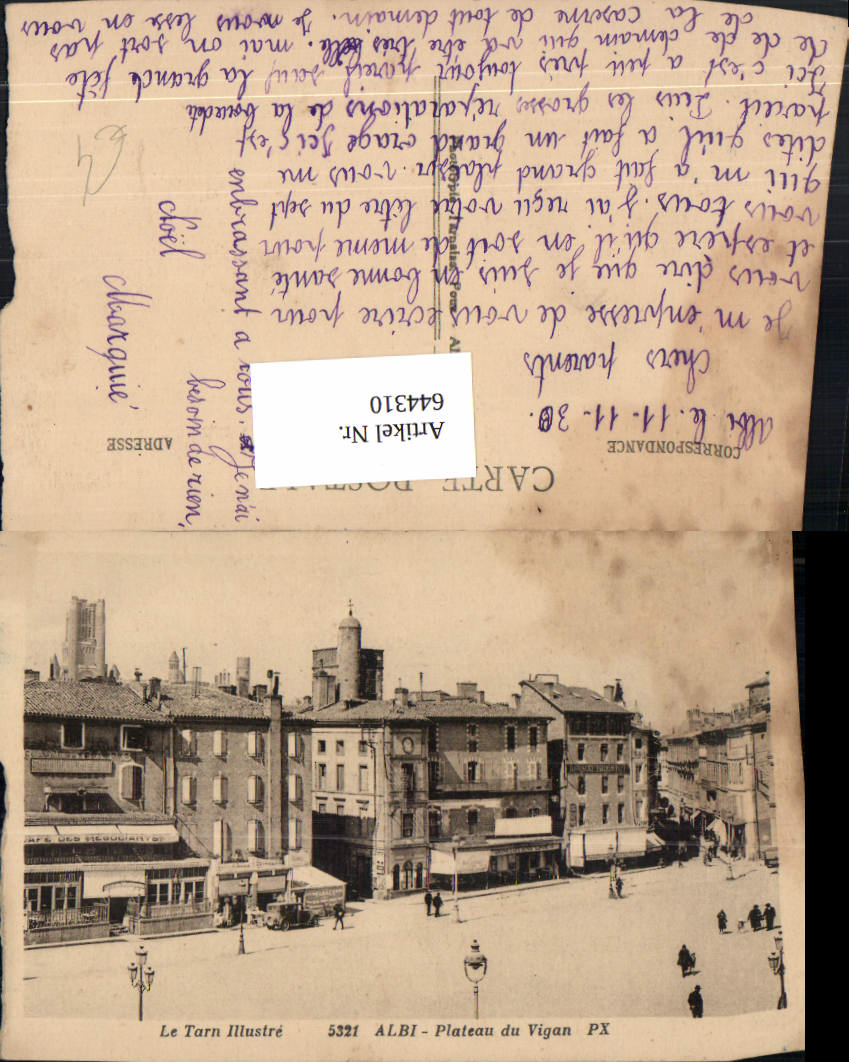 CARTE POSTALE
CORRESPONDANCE
ADRESSE
Artikel Nr.
644310
Albi le. 11-11-30.
Chers parents
Je m'enpresse de vous ecrire pour
vous dire que je suis en bonne santé
et espere qu'il en soit de meme pour
vous tous. J'ai reçu votre lètre du sept
qui m'a fait grand plassir. vous me
dites qu'il a fait un grand orage Ici c'est
pareil. Puis les grosses réparations de la
Ici c'est a peu près toujour pareil sauf la grande fête
de de demain qui va etre très belle. mai on sort pas
de la caserne de tout demain. Je vous lesse en vous
enbrassant a tous. Je n'ai
besoin de rien,
Noël
Marquié
£4
CAFE DES NEGOCIANTS
Le Tarn Illustré 5321 ALBI - Plateau du Vigan PX